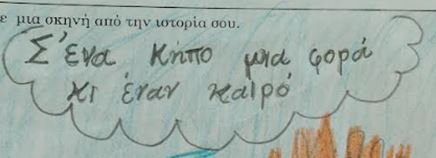 ε μια σκηνή από την ιστορία σου.
Σ' ένα κήπο μια φορά
κι έναν καιρό